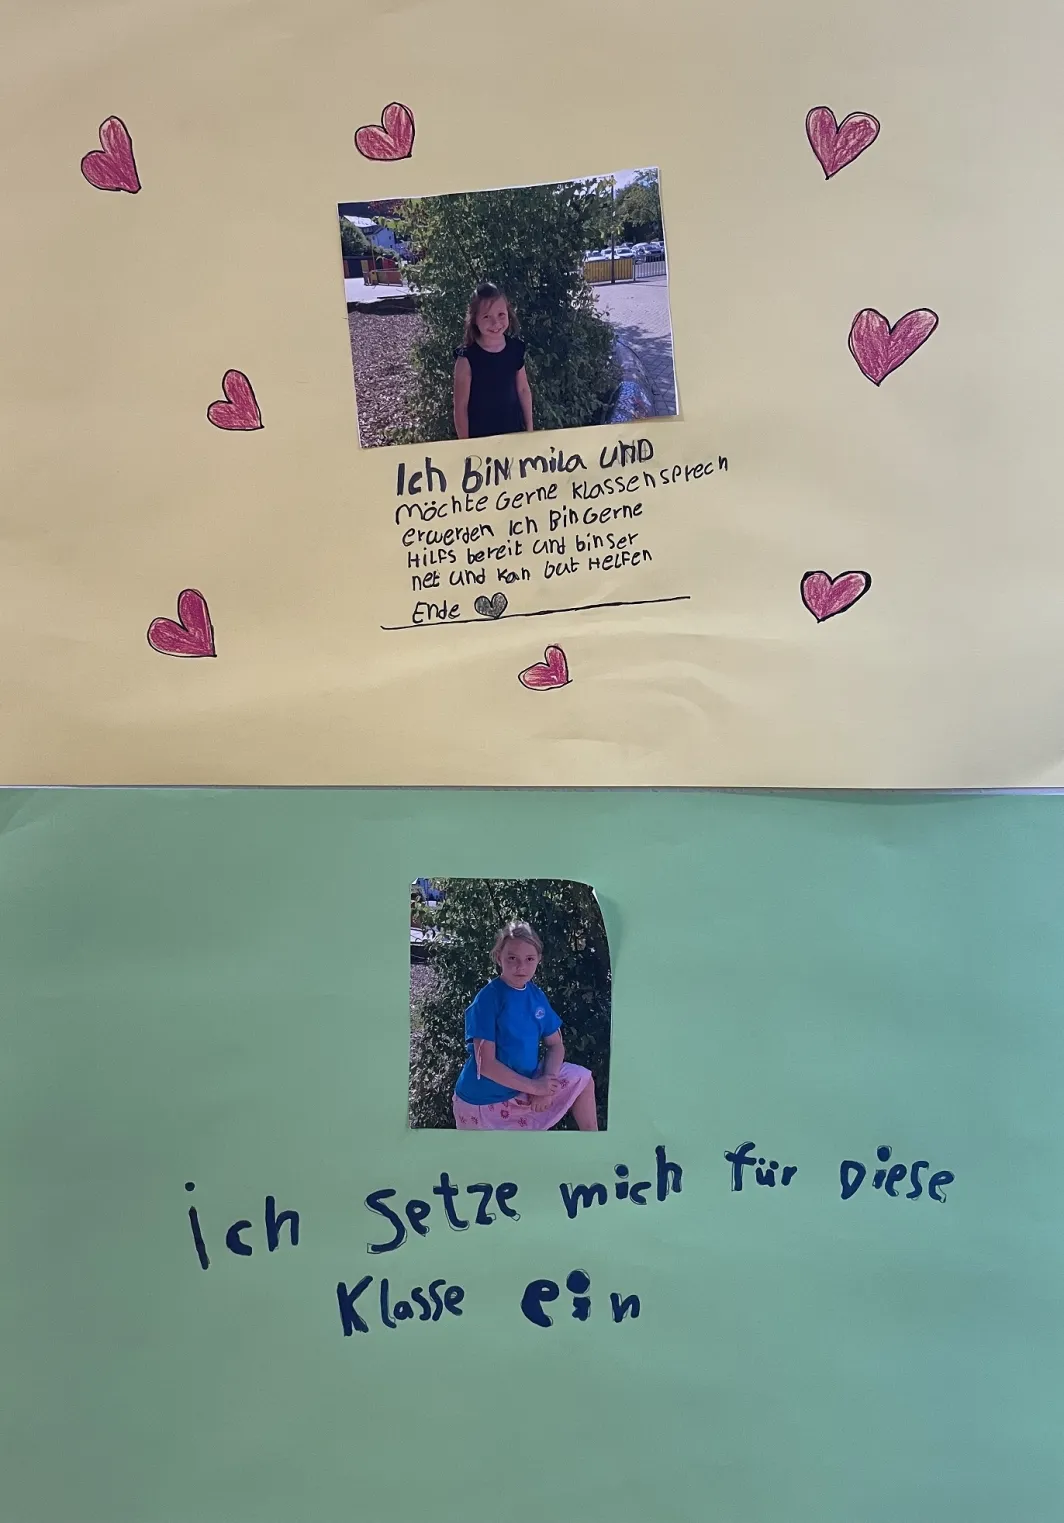 Ich BiN mila UND
möchte Gerne Klassensprech
erwerden Ich Bin Gerne
HiLFS bereit und binser
net und kan Gut HeLFen
Ende
ich Setze mich für Diese
Klasse ein